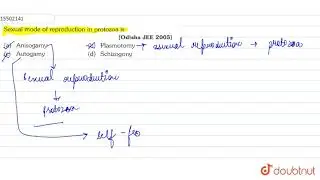 15502141
Sexual mode of reproduction in protozoa is
(Odisha JEE 2005)
(a) Anisogamy (b) Plasmotomy → asexual reproduction → protozoa
(c) Autogamy (d) Schizogony
Sexual reproduction
protozoa
self - fe
doubtnut